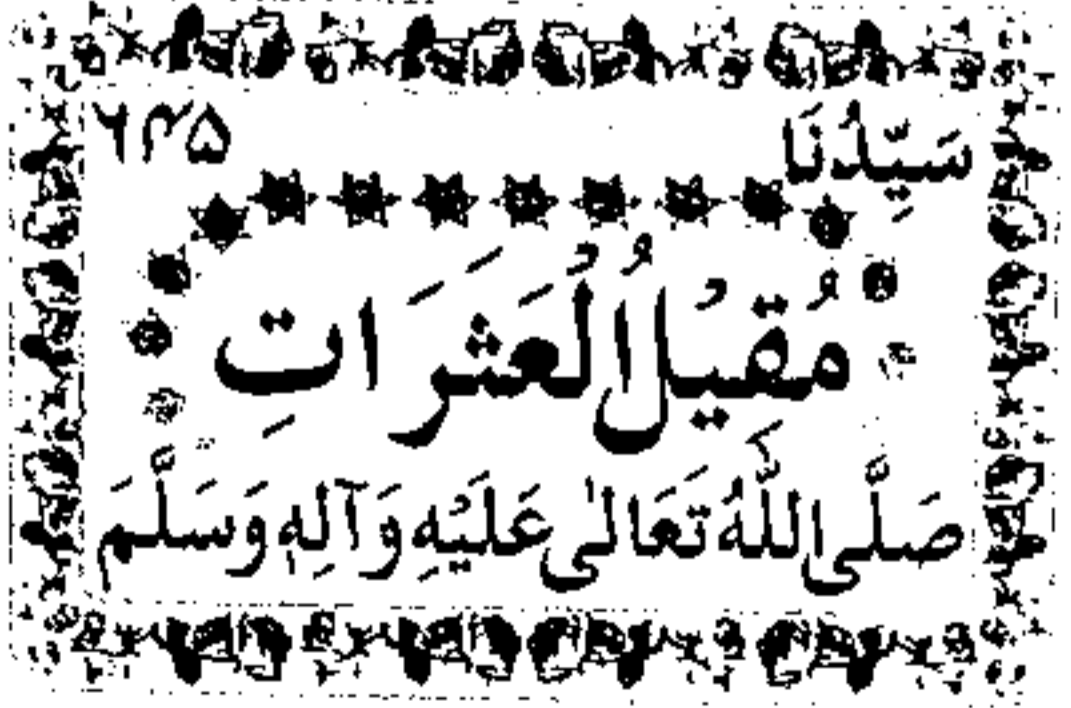 سَيِّدُنَا ۶۴۵
مُقِيْلُ الْعَثَرَاتِ
صَلَّى اللّٰهُ تَعَالٰى عَلَيْهِ وَآلِهٖ وَسَلَّمَ